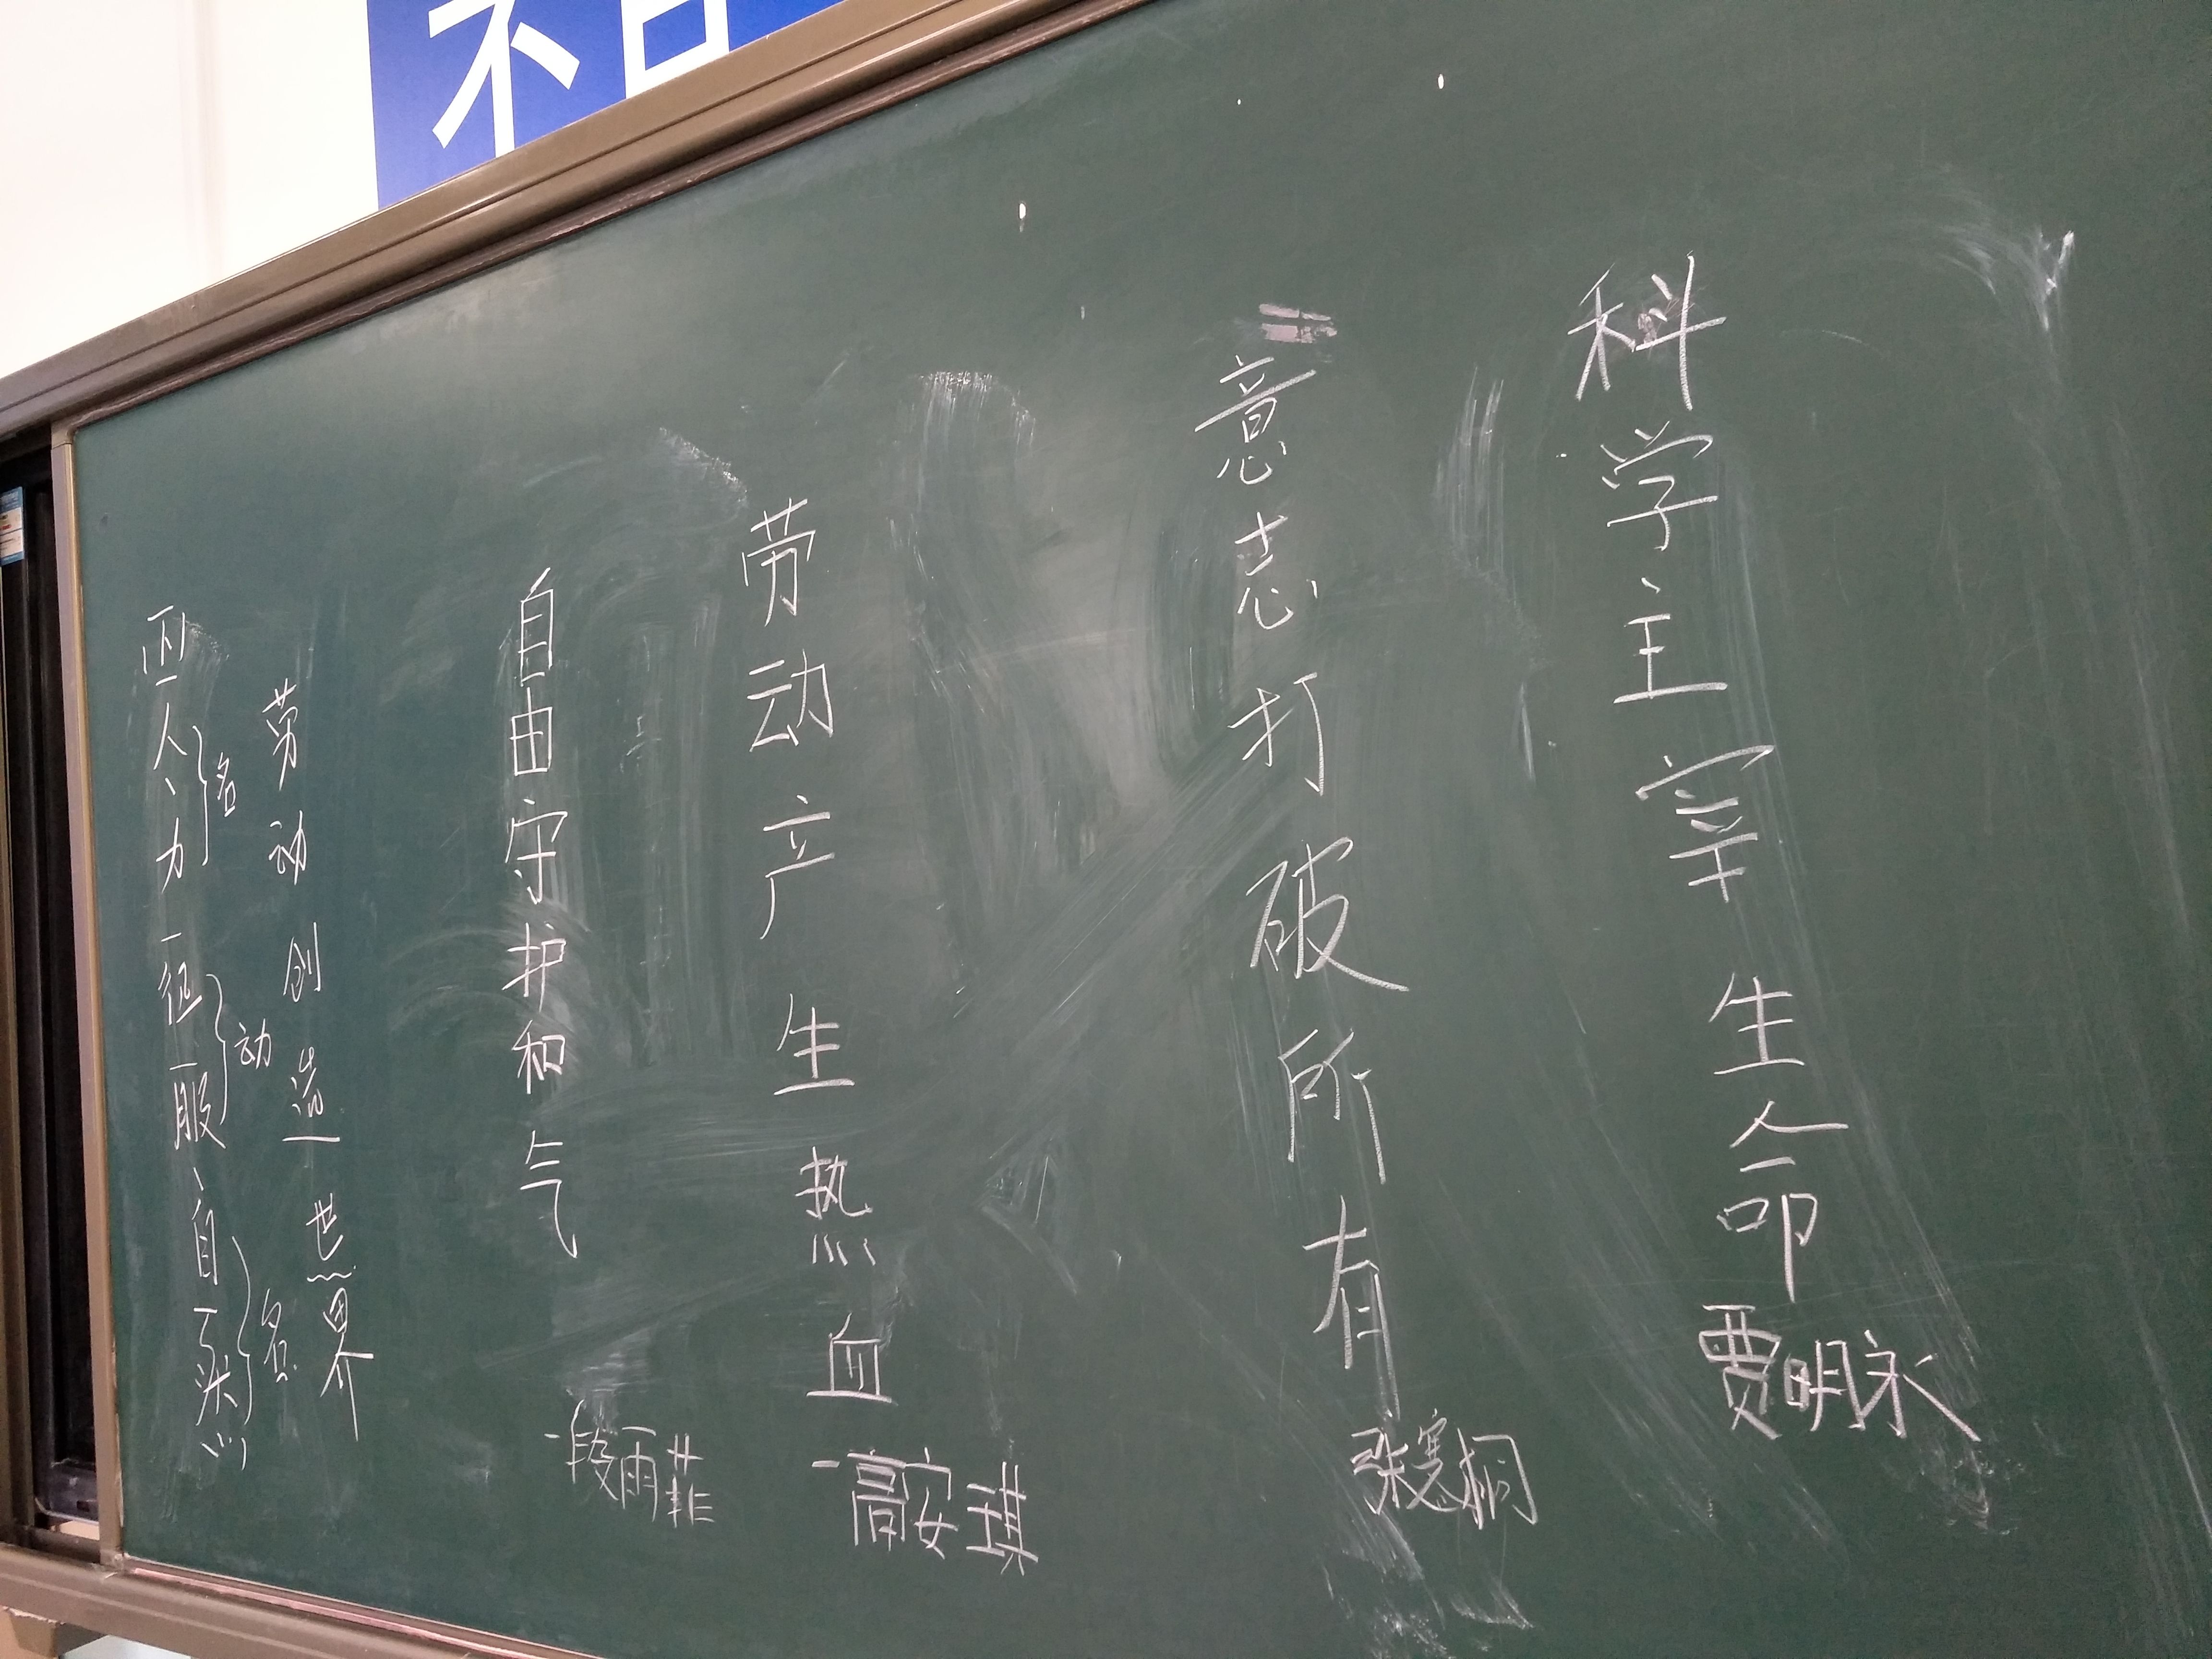 科学主宰生命
贾明永
意志打破所有
张寒桐
劳动产生热血
-高安琪
自由守护和气
-段雨菲
劳动创造世界
名
动
名
人、力一征服、自然